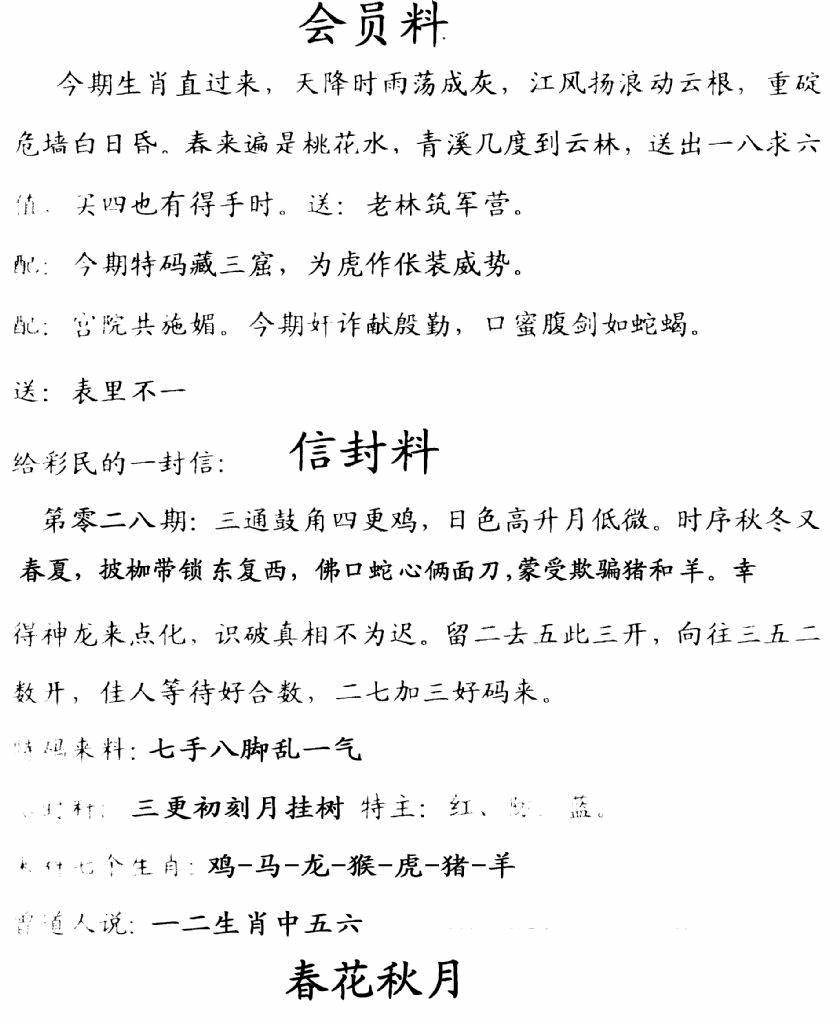 会员料
今期生肖直过来，天降时雨荡成灰，江风扬浪动云根，重碇
危墙白日昏。春来遍是桃花水，青溪几度到云林，送出一八求六
值．买四也有得手时。送：老林筑军营。
配：今期特码藏三窟，为虎作伥装威势。
配：宫院共施媚。今期奸诈献殷勤，口蜜腹剑如蛇蝎。
送：表里不一
信封料
给彩民的一封信：
第零二八期：三通鼓角四更鸡，日色高升月低微。时序秋冬又
春夏，披枷带锁东复西，佛口蛇心俩面刀,蒙受欺骗猪和羊。幸
得神龙来点化，识破真相不为迟。留二去五此三开，向往三五二
数开，佳人等待好合数，二七加三好码来。
特码来料：七手八脚乱一气
料：三更初刻月挂树 特主：红、蓝。
七个生肖：鸡-马-龙-猴-虎-猪-羊
曾道人说：一二生肖中五六
春花秋月